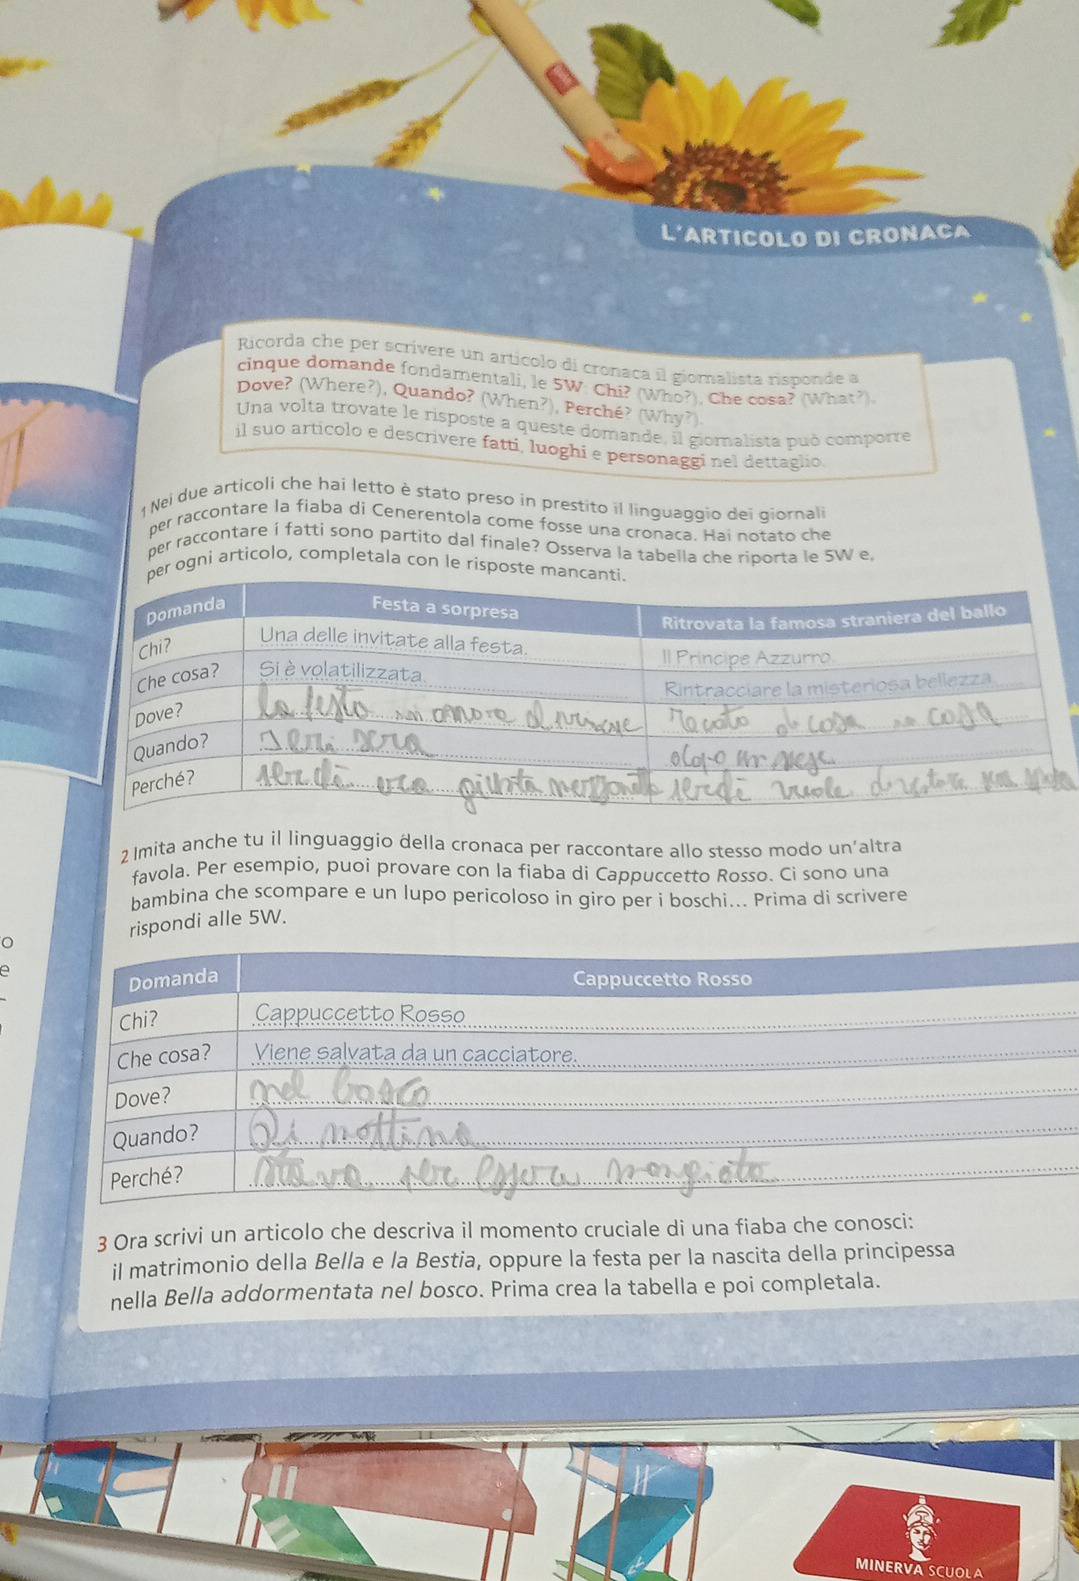 L'ARTICOLO DI CRONACA
Ricorda che per scrivere un articolo di cronaca il giornalista risponde a
cinque domande fondamentali, le 5W: Chi? (Who?), Che cosa? (What?),
Dove? (Where?), Quando? (When?), Perché? (Why?).
Una volta trovate le risposte a queste domande, il giornalista può comporre
il suo articolo e descrivere fatti, luoghi e personaggi nel dettaglio.
1 Nei due articoli che hai letto è stato preso in prestito il linguaggio dei giornali
per raccontare la fiaba di Cenerentola come fosse una cronaca. Hai notato che
per raccontare i fatti sono partito dal finale? Osserva la tabella che riporta le 5W e,
per ogni articolo, completala con le risposte mancanti.
Domanda Festa a sorpresa Ritrovata la famosa straniera del ballo
Chi? Una delle invitate alla festa. Il Principe Azzurro.
Che cosa? Si è volatilizzata. Rintracciare la misteriosa bellezza.
Dove? la festa casa in casa
Quando? Ieri sera dopo un mese
Perché? perché era perché vuole
2 Imita anche tu il linguaggio della cronaca per raccontare allo stesso modo un'altra
favola. Per esempio, puoi provare con la fiaba di Cappuccetto Rosso. Ci sono una
bambina che scompare e un lupo pericoloso in giro per i boschi... Prima di scrivere
rispondi alle 5W.
o
e
Domanda Cappuccetto Rosso
Chi? Cappuccetto Rosso
Che cosa? Viene salvata da un cacciatore.
Dove? nel bosco
Quando? Di mattina
Perché? stava per essere mangiata
3 Ora scrivi un articolo che descriva il momento cruciale di una fiaba che conosci:
il matrimonio della Bella e la Bestia, oppure la festa per la nascita della principessa
nella Bella addormentata nel bosco. Prima crea la tabella e poi completala.
MINERVA SCUOLA